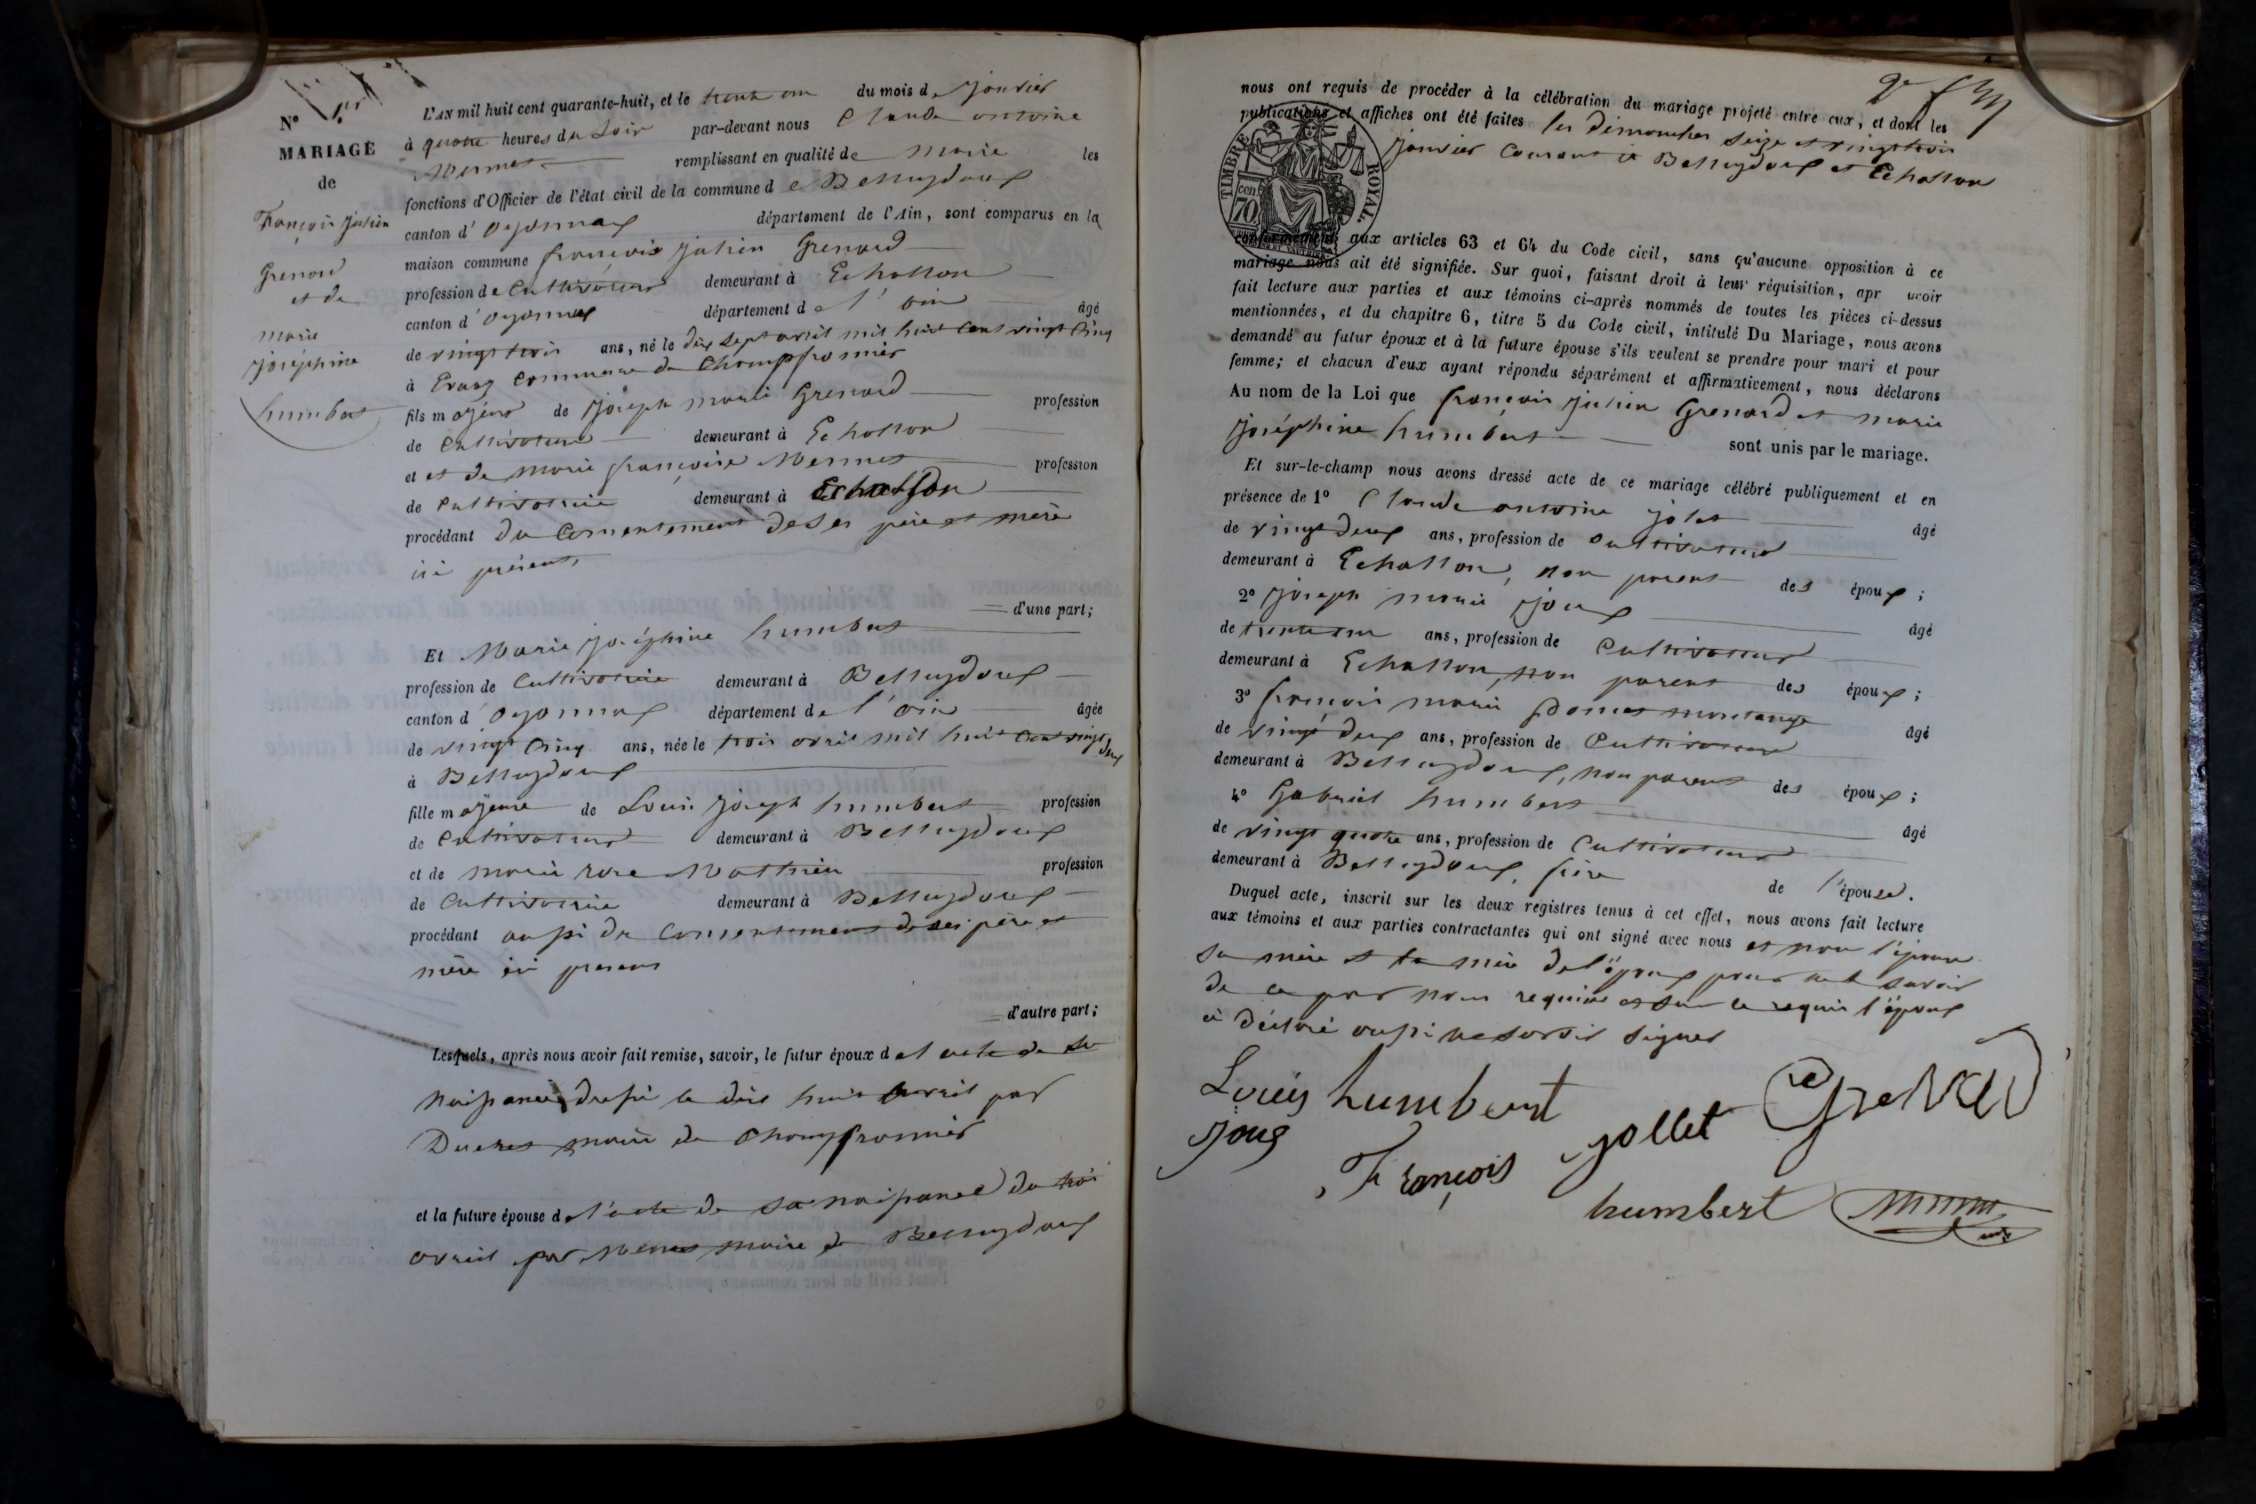 N° 1er
MARIAGE
de
François Julien
Grenard
et de
marie
Joséphine
humbert
L'AN mil huit cent quarante-huit, et le trente un du mois de Janvier
à quatre heures du Soir par-devant nous Claude antoine
Mermet remplissant en qualité de maire les
fonctions d'Officier de l'état civil de la commune de Belleydoux
canton d'oyonnax département de l'Ain, sont comparus en la
maison commune françois julien Grenard
profession de Cultivateur demeurant à Echallon
canton d'oyonnax département de l'ain âgé
de vingt trois ans, né le dix sept avril mil huit cent vingt cinq
à Evuaz Commune de Champfromier
fils majeur de Joseph marie Grenard profession
de Cultivateur demeurant à Echallon
et et de marie françoise Mermet profession
de Cultivatrice demeurant à Echallon
procédant du Consentement de ses père et mère
ici présents
d'une part;
Et Marie Joséphine humbert
profession de Cultivatrice demeurant à Belleydoux
canton d'oyonnax département de l'ain âgée
de vingt Cinq ans, née le trois avril mil huit cent vingt deux
à Belleydoux
fille majeure de Louis Joseph humbert profession
de Cultivateur demeurant à Belleydoux
et de marie rose Mathieu profession
de Cultivatrice demeurant à Belleydoux
procédant aussi du Consentement de ses père et
mère ici présens
d'autre part;
Lesquels, après nous avoir fait remise, savoir, le futur époux de l'acte de sa
naissance dressé le dix huit avril par
Ducret maire de Champfromier
et la future épouse de l'acte de sa naissance du trois
avril par Mermet maire de Belleydoux
nous ont requis de procéder à la célébration du mariage projeté entre eux, et dont les
publications et affiches ont été faites les dimanches seize et vingt trois
janvier Courant à Belleydoux et Echallon
TIMBRE ROYAL.
cen 70
conformément aux articles 63 et 64 du Code civil, sans qu'aucune opposition à ce
mariage nous ait été signifiée. Sur quoi, faisant droit à leur réquisition, apr avoir
fait lecture aux parties et aux témoins ci-après nommés de toutes les pièces ci-dessus
mentionnées, et du chapitre 6, titre 5 du Code civil, intitulé Du Mariage, nous avons
demandé au futur époux et à la future épouse s'ils veulent se prendre pour mari et pour
femme; et chacun d'eux ayant répondu séparément et affirmativement, nous déclarons
Au nom de la Loi que françois julien Grenard et marie
Joséphine humbert sont unis par le mariage.
Et sur-le-champ nous avons dressé acte de ce mariage célébré publiquement et en
présence de 1° Claude antoine jolet âgé
de vingt deux ans, profession de Cultivateur
demeurant à Echallon, non parent des époux;
2° Joseph marie joux âgé
de trente un ans, profession de Cultivateur
demeurant à Echallon, non parent des époux;
3° françois marie Poncet montange âgé
de vingt deux ans, profession de Cultivateur
demeurant à Belleydoux, non parent des époux;
4° Gabriel humbert âgé
de vingt quatre ans, profession de Cultivateur
demeurant à Belleydoux, frère de l'épouse.
Duquel acte, inscrit sur les deux registres tenus à cet effet, nous avons fait lecture
aux témoins et aux parties contractantes qui ont signé avec nous et non l'épouse
sa mère et la mère de l'époux pour ne le savoir
de ce par nous requise et sur ce requis l'époux
a déclaré aussi ne savoir signer
Louis humbert
Grenard
Joux
jollet
François
humbert